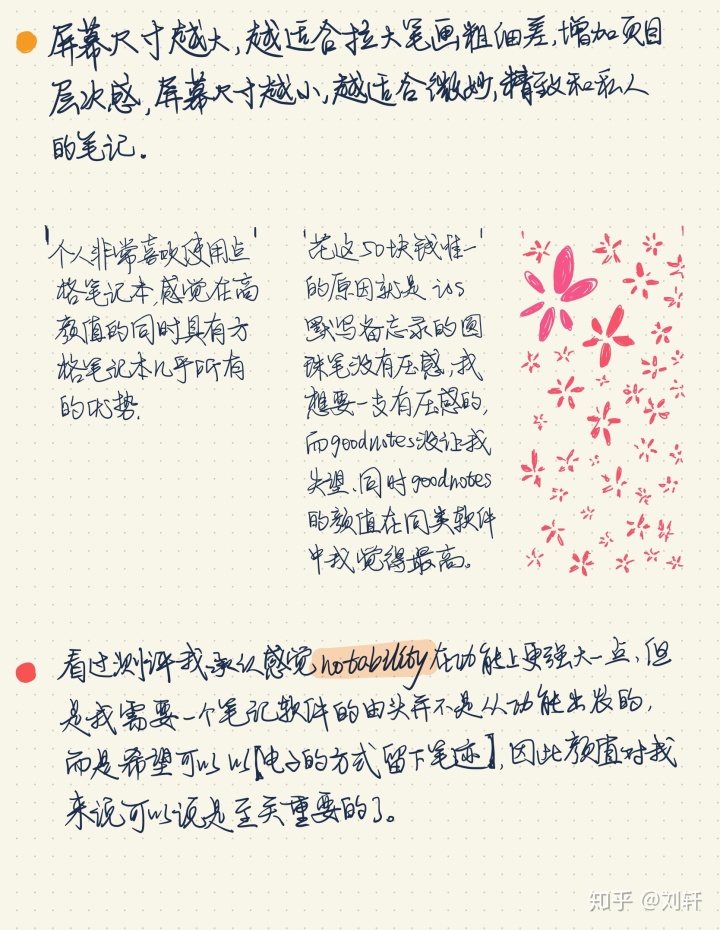 屏幕尺寸越大,越适合拉大笔画粗细差,增加页目
层次感,屏幕尺寸越小,越适合微妙,精致和私人
的笔记.
个人非常喜欢使用点
格笔记本,感觉在高
颜值的同时具有方
格笔记本几乎所有
的优势.
花这50块钱唯一
的原因就是 ios
默写备忘录的圆
珠笔没有压感,我
想要一支有压感的,
而goodnotes没让我
失望、同时goodnotes
的颜值在同类软件
中我觉得最高。
看过测评我承认感觉notability在功能上更强大一点,但
是我需要一个笔记软件的由头并不是从功能出发的,
而是希望可以以【电子的方式留下笔迹】,因此颜值对我
来说可以说是至关重要的了。
知乎 @刘轩